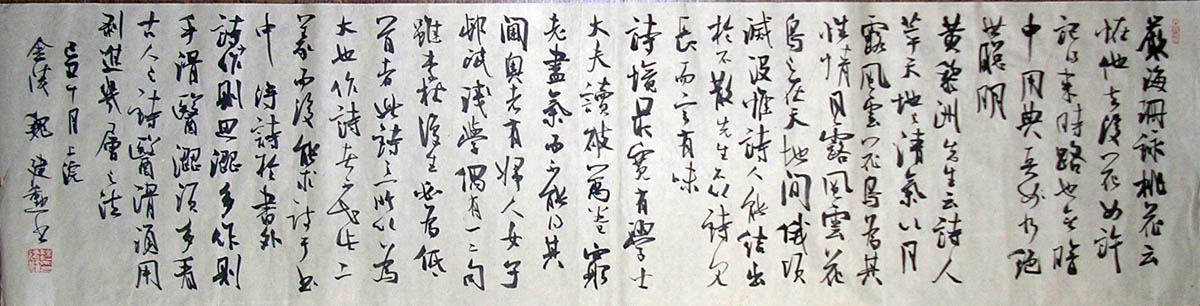 嚴海珊詠桃花云
怪他去後花如許
記得來時路也無暗
中用典真乃絕
世聰明
黃藜洲先生云詩人
萃天地之清氣以月
露風雲花鳥為其
性情月露風雲花
鳥之在天地間俄頃
滅沒惟詩人能結出
於不散先生不以詩見
長而言有味
詩境最寬有學士
大夫讀破萬卷窮
老盡氣而不能得其
閫奧者有婦人女子
邨氓淺學偶有一二句
雖李杜復生必為低
首者此詩之所以為
大也作詩者必知此二
義而後能求詩于書
中得詩於書外
詩少作則思澀多作則
手滑醫澀須多看
古人之詩醫滑須用
剝進幾層之法
己卯十月上浣
金陵 魏建